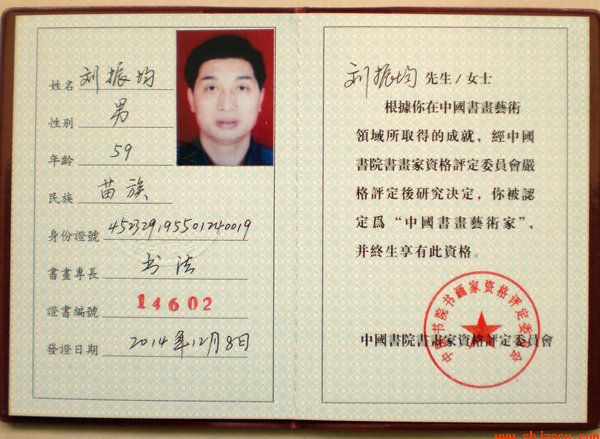 姓名 刘振均
性别 男
年齡 59
民族 苗族
身份證號 452329195501240019
書畫專長 书法
證書編號 14602
發證日期 2014年12月8日
刘振均 先生/女士
根據你在中國書畫藝術
領域所取得的成就，經中國
書院書畫家資格評定委員會嚴
格評定後研究決定，你被認
定爲“中國書畫藝術家”，
并終生享有此資格。
中國書院書畫家資格評定委員會
中国书院书画家资格评定委员会